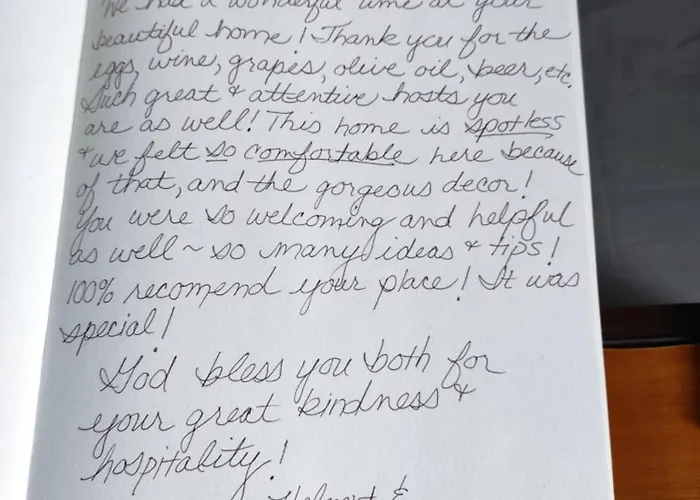 We had a wonderful time at your
beautiful home! Thank you for the
eggs, wine, grapes, olive oil, beer, etc.
Such great & attentive hosts you
are as well! This home is spotless
& we felt so comfortable here because
of that, and the gorgeous decor!
You were so welcoming and helpful
as well ~ so many ideas & tips!
100% recomend your place! It was
special!
God bless you both for
your great kindness &
hospitality!
&